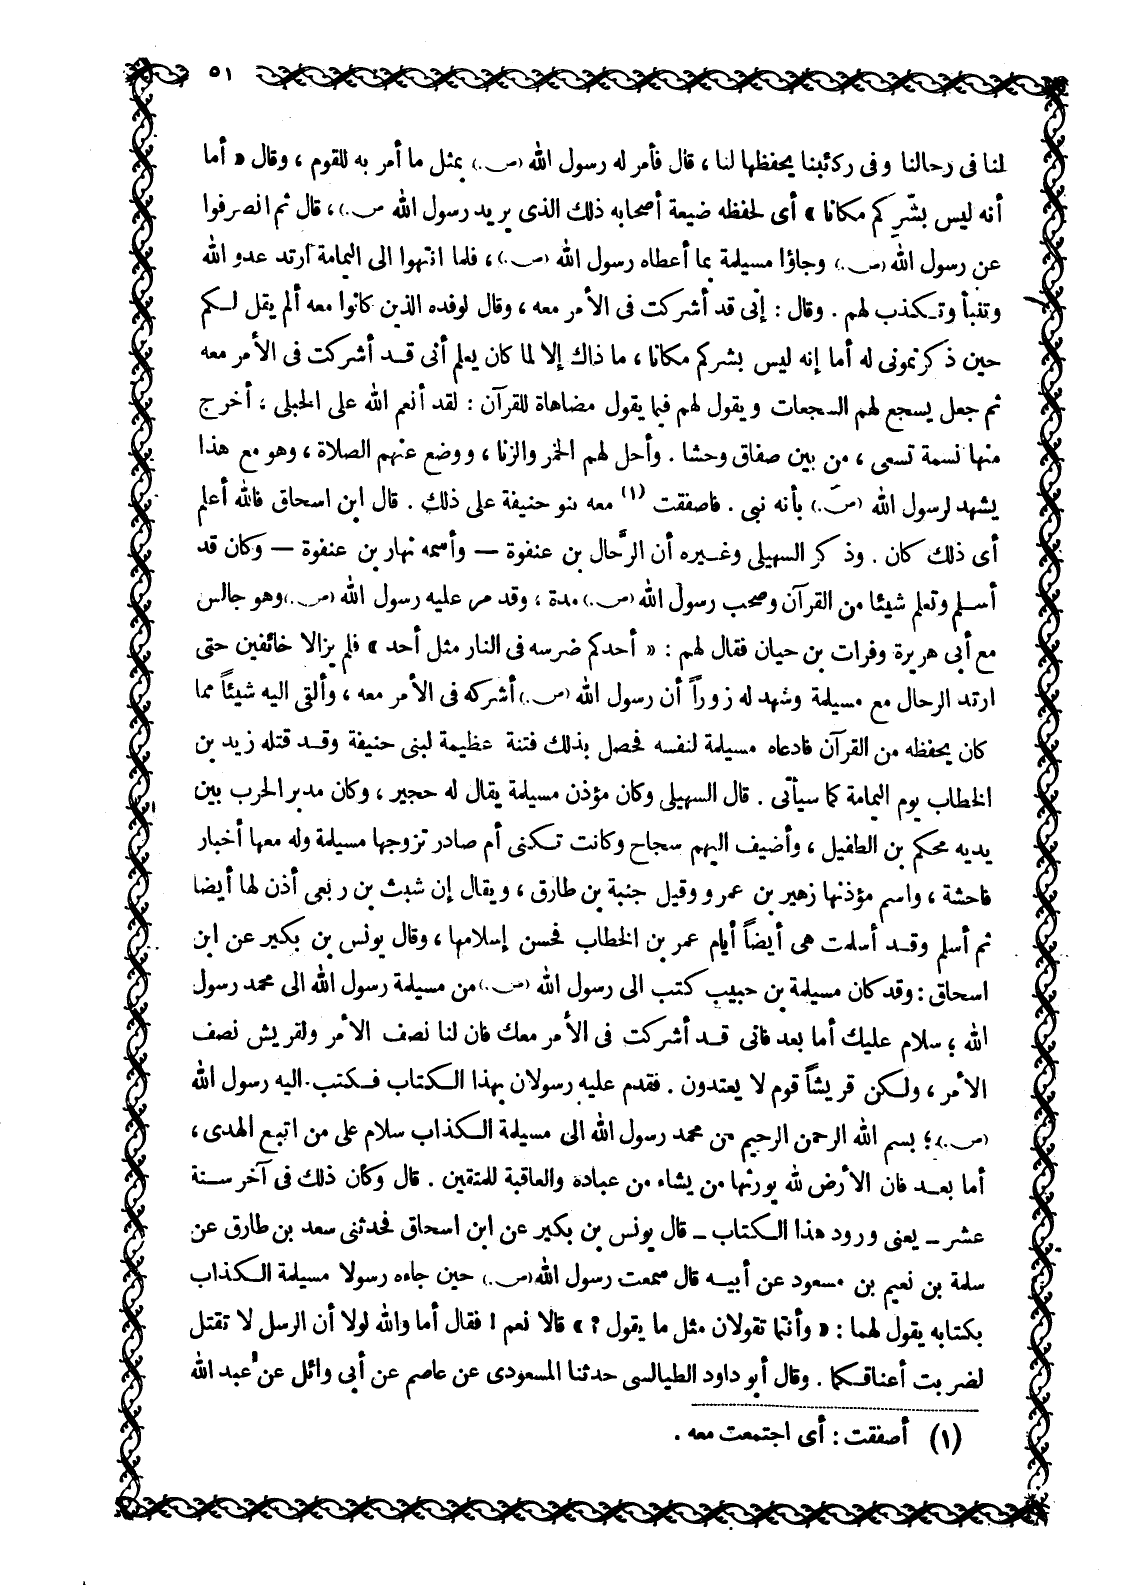 ٥١
لنا فى رحالنا وفى ركائبنا يحفظها لنا ، قال فأمر له رسول الله (ص.) بمثل ما أمر به للقوم ، وقال « أما
أنه ليس بشّرِكم مكانا » أى لحفظه ضيعة أصحابه ذلك الذى يريد رسول الله ص.) ، قال ثم انصرفوا
عن رسول الله (ص.) وجاؤا مسيلمة بما أعطاه رسول الله (ص.) ، فلما انتهوا الى اليمامة ارتد عدو الله
وتنبأ وتكذب لهم . وقال : إنى قد أشركت فى الأمر معه ، وقال لوفده الذين كانوا معه ألم يقل لكم
حين ذكرتمونى له أما إنه ليس بشركم مكانا ، ما ذاك إلا لما كان يعلم أنى قد أشركت فى الأمر معه
ثم جعل يسجع لهم السجعات ويقول لهم فيما يقول مضاهاة للقرآن : لقد أنعم الله على الحبلى ، أخرج
منها نسمة تسعى ، من بين صفاق وحشا . وأحل لهم الخمر والزنا ، ووضع عنهم الصلاة ، وهو مع هذا
يشهد لرسول الله (ص.) بأنه نبى . فاصفقت (١) معه بنو حنيفة على ذلك . قال ابن اسحاق فالله أعلم
أى ذلك كان . وذكر السهيلى وغيره أن الرحَّال بن عنفوة — وأسمه نهار بن عنفوة — وكان قد
أسلم وتعلم شيئا من القرآن وصحب رسول الله (ص.) مدة ، وقد مر عليه رسول الله (ص.) وهو جالس
مع أبى هريرة وفرات بن حيان فقال لهم : « أحدكم ضرسه فى النار مثل أحد » فلم يزالا خائفين حتى
ارتد الرحال مع مسيلمة وشهد له زوراً أن رسول الله (ص.) أشركه فى الأمر معه ، وألقى اليه شيئاً مما
كان يحفظه من القرآن فادعاه مسيلمة لنفسه فحصل بذلك فتنة عظيمة لبنى حنيفة وقد قتله زيد بن
الخطاب يوم اليمامة كما سيأتى . قال السهيلى وكان مؤذن مسيلمة يقال له حجير ، وكان مدبر الحرب بين
يديه محكم بن الطفيل ، وأضيف اليهم سجاح وكانت تكنى أم صادر تزوجها مسيلمة وله معها أخبار
فاحشة ، واسم مؤذنها زهير بن عمرو وقيل جنبة بن طارق ، ويقال إن شبث بن ربعى أذن لها أيضا
ثم أسلم وقد أسلمت هى أيضاً أيام عمر بن الخطاب فحسن إسلامها ، وقال يونس بن بكير عن ابن
اسحاق : وقد كان مسيلمة بن حبيب كتب الى رسول الله (ص.) من مسيلمة رسول الله الى محمد رسول
الله ؛ سلام عليك أما بعد فانى قد أشركت فى الأمر معك فان لنا نصف الأمر ولقريش نصف
الأمر ، ولكن قريشاً قوم لا يعتدون . فقدم عليه رسولان بهذا الكتاب فكتب اليه رسول الله
(ص.) ؛ بسم الله الرحمن الرحيم من محمد رسول الله الى مسيلمة الكذاب سلام على من اتبع الهدى ،
أما بعد فان الأرض لله يورثها من يشاء من عباده والعاقبة للمتقين . قال وكان ذلك فى آخر سنة
عشر – يعنى ورود هذا الكتاب – قال يونس بن بكير عن ابن اسحاق فحدثنى سعد بن طارق عن
سلمة بن نعيم بن مسعود عن أبيه قال سمعت رسول الله (ص.) حين جاءه رسولا مسيلمة الكذاب
بكتابه يقول لهما : « وأنتما تقولان مثل ما يقول ؟ » قالا نعم ! فقال أما والله لولا أن الرسل لا تقتل
لضربت أعناقكما . وقال أبو داود الطيالسى حدثنا المسعودى عن عاصم عن أبى وائل عن عبد الله
(١) أصفقت : أى اجتمعت معه .